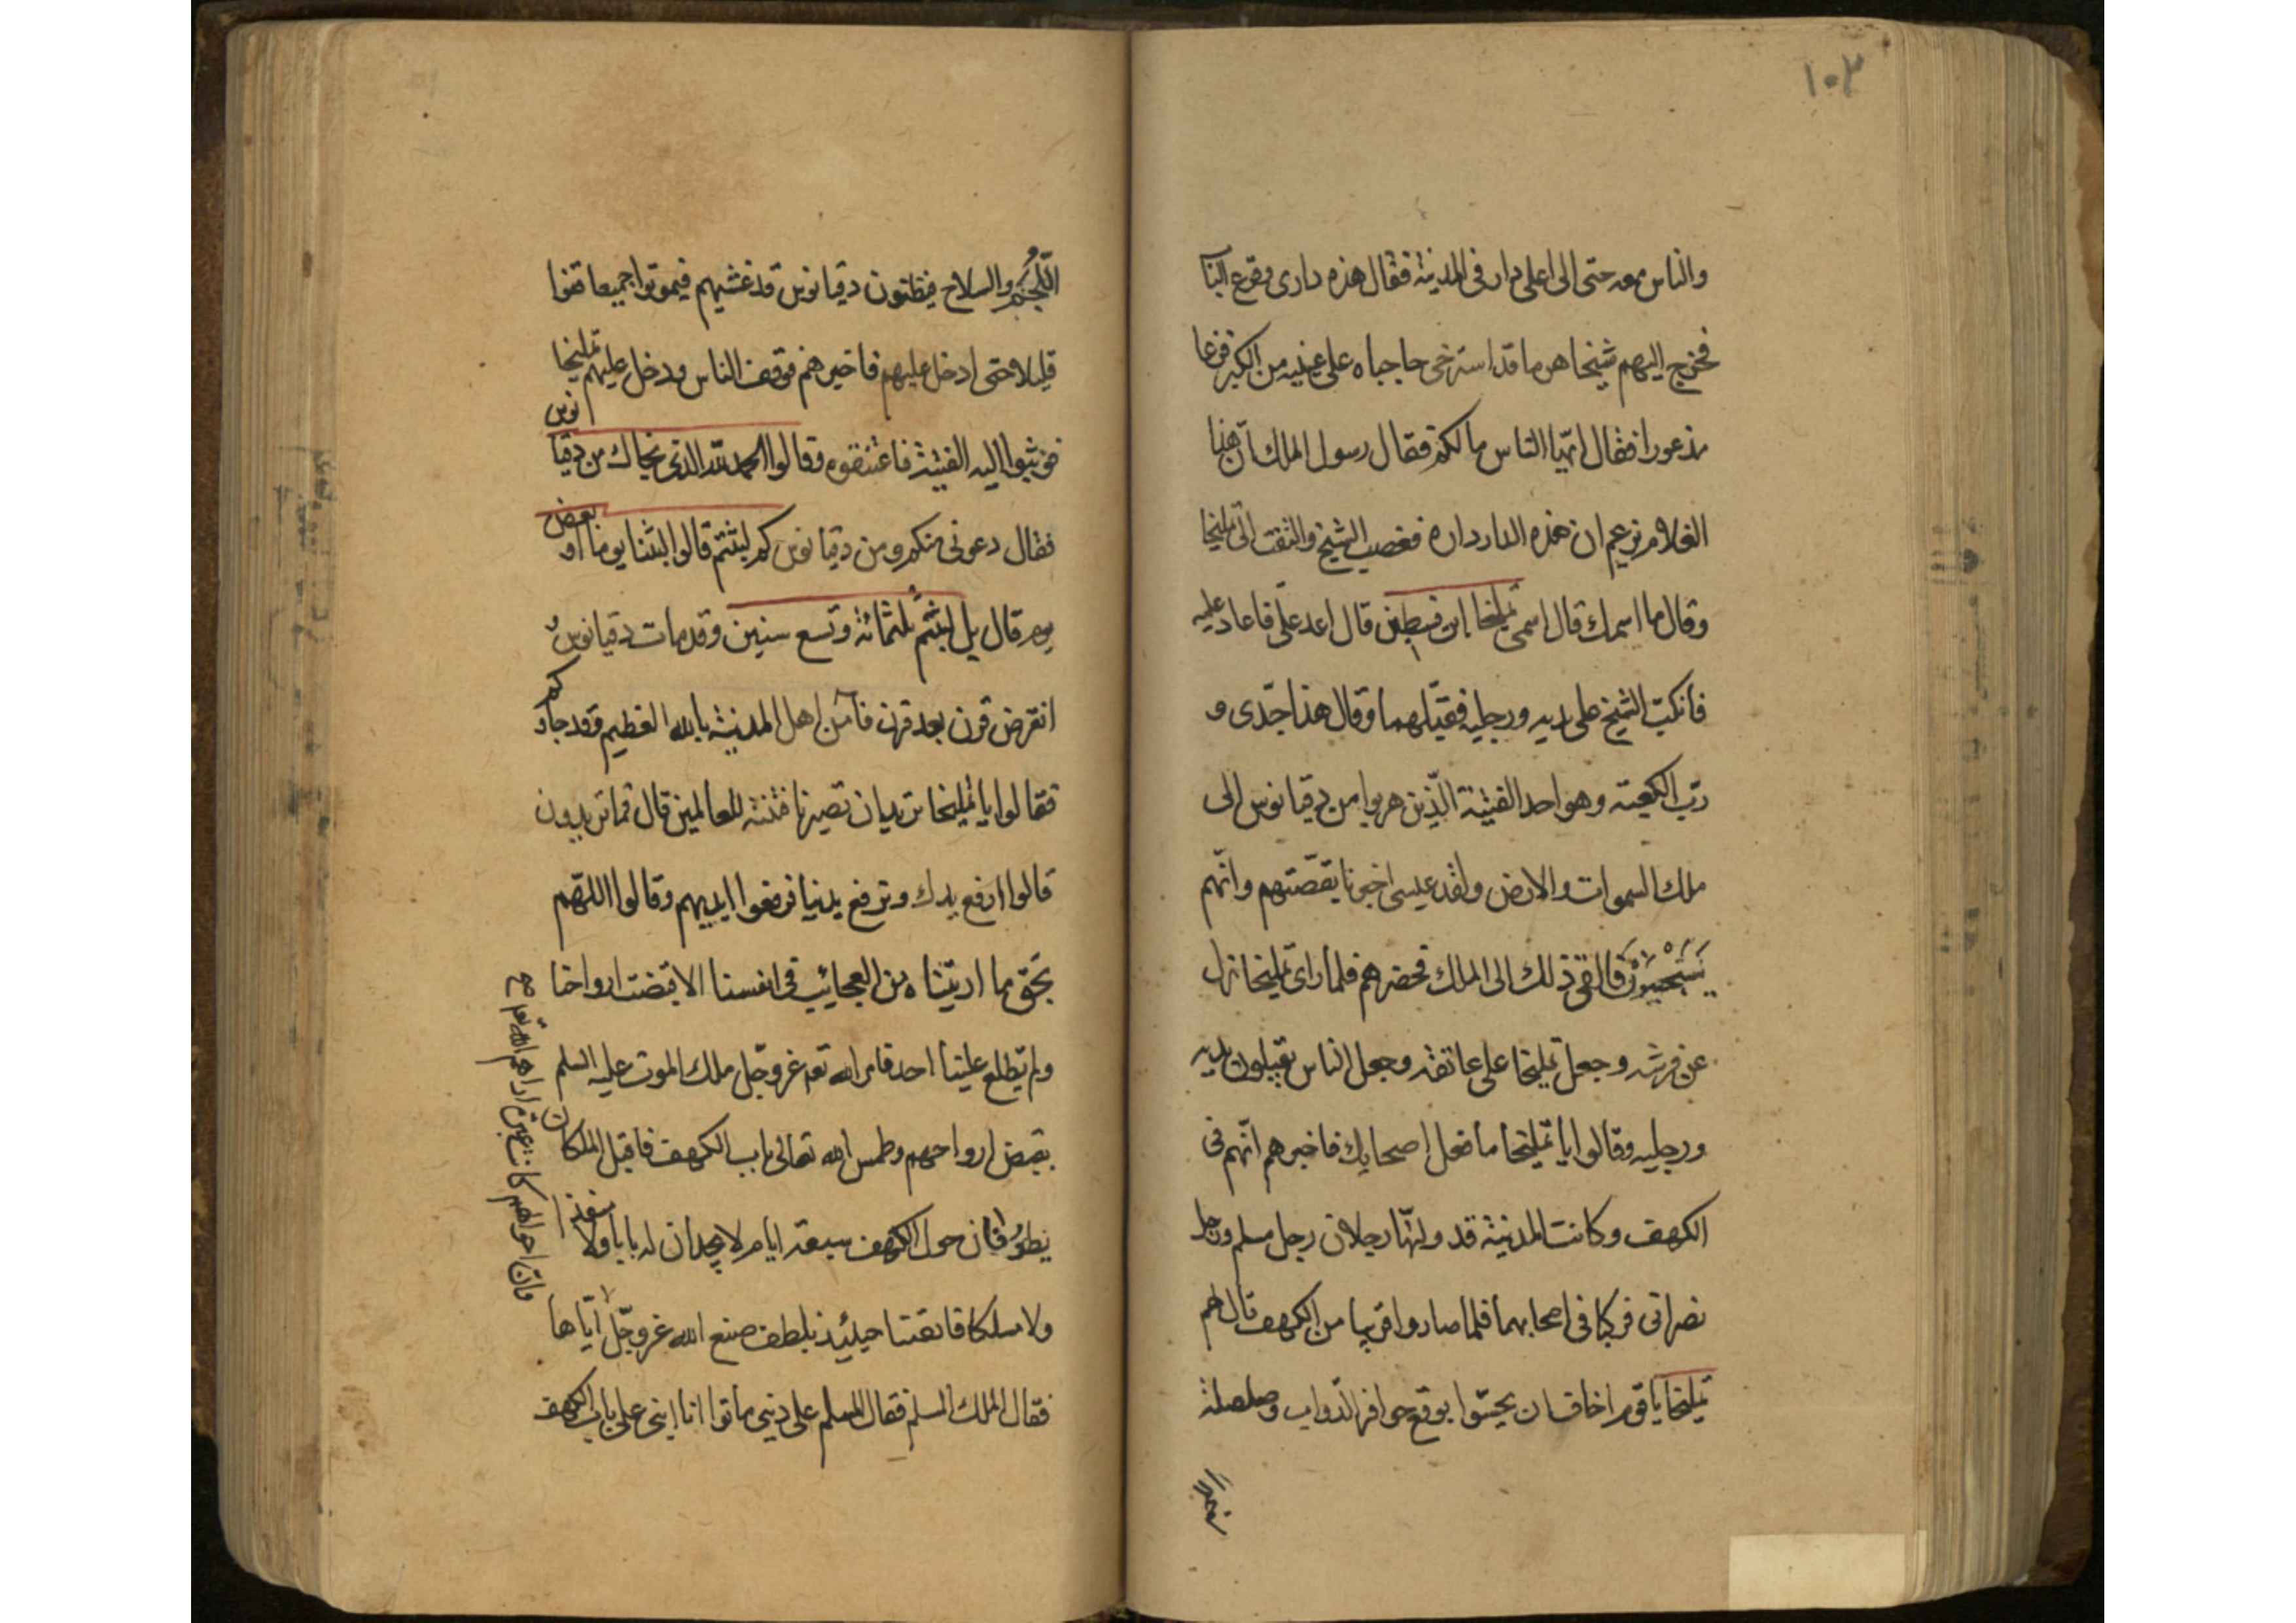 ١٠٣
والناس معه حتى الى اعلى دار فى المدينة فقال هذه دارى وقرع الباب
فخرج اليهم شيخا هرما قد استرخى حاجباه على عينيه من الكبر فزعا
مذعورا فقال ايّها الناس ما لكم فقال رسول الملك ان هذا
الغلام يزعم ان هذه الدار داره فغضب الشيخ والتفت الى تمليخا
وقال ما اسمك قال اسمى تمليخا ابن فسطين قال اعد علىّ فاعاد عليه
فانكبّ الشيخ على يديه ورجليه فقبّلهما وقال هذا جدّى و
ربّ الكعبة وهو احد الفتية الّذين هربوا من دقيانوس الى
ملك السموات والارض ولقد عيسى اخبرنا بقصّتهم وانّهم
سَيَحْيَوْنَ فالقى ذلك الى الملك فحضرهم فلما راى تمليخا نزل
عن فرسه وجعل تمليخا على عاتقه وجعل الناس يقبلون يديه
ورجليه وقالوا يا تمليخا ما فعل اصحابك فاخبرهم انّهم فى
الكهف وكانت المدينة قد وليّها رجلان رجل مسلم ورجل
نصرانى فركبا فى اصحابهما فلما صاروا قريبا من الكهف قال لهم
تمليخا يا قوم اخاف ان يحسّوا بوقع حوافر الدّواب وصلصلة
اللُّجُم والسلاح فيظنون دقيانوس قد غشيهم فيموتوا جميعا قفوا
قليلا حتى ادخل عليهم فاخبرهم فوقف الناس ودخل عليهم تمليخا
فوثبوا اليه الفتية فاعتنقوه وقالوا الحمد لله الذى نجاك من دقيانوس
فقال دعونى منكم ومن دقيانوس كم لبثتم قالوا لبثنا يوما او بعض
يوم قال بل لبثتم ثلثمائة وتسع سنين وقد مات دقيانوس و
انقرض قرن بعد قرن فآمن اهل المدينة بالله العظيم وقد جاؤكم
فقالوا يا تمليخا تريد ان تصيرنا فتنة للعالمين قال فما تريدون
قالوا ارفع يدك ونرفع يدنيا فرفعوا ايديهم وقالوا اللهم
بَحق ما اريتناه من العجائب فى انفسنا الا قبضت ارواحنا
ولم يطلع علينا احد فامر الله تعه عز وجل ملك الموت عليه السلم
بقبض ارواحهم وطمس الله تعالى باب الكهف فاقبل الملكان
يطوفان حول الكهف سبعة ايام لا يجدان له بابا ولا منفذا
ولا مسلكا فايقنا حينئذ بلطف صنع الله عز وجلّ
فقال الملك المسلم فقال المسلم على دينى ماتوا انا ابنى على باب الكهف
وان احوالهم كانت عبرة اراهم الله تعه